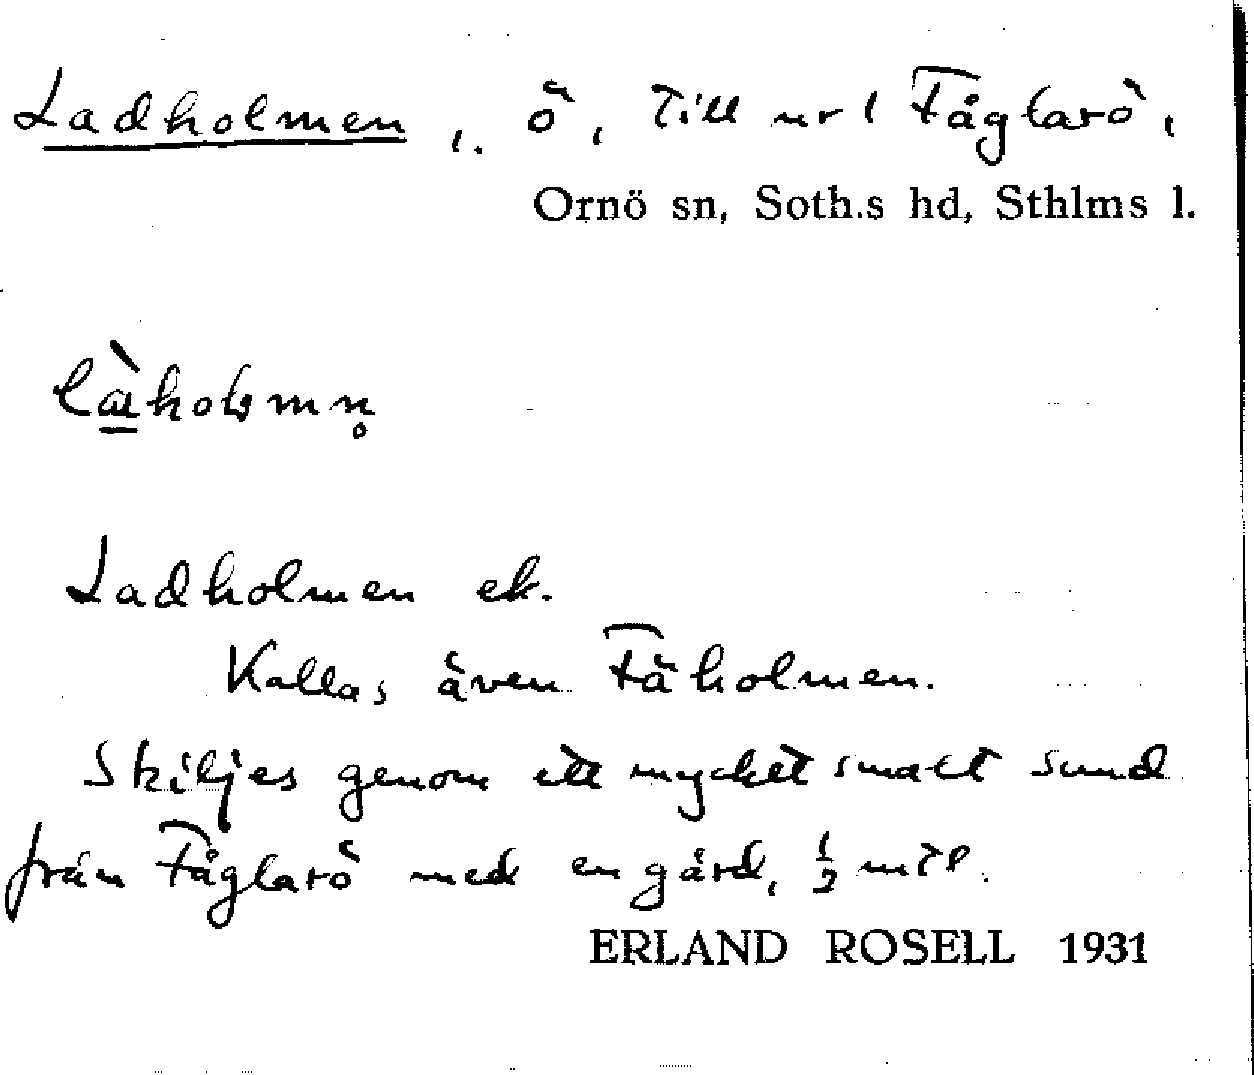 Ladholmen, ö, till nr 1 Fåglarö,
Ornö sn, Soth.s hd, Sthlms l.
Ladholmen ek.
Kallas även Fäholmen.
Skiljes genom ett mycket smalt sund
från Fåglarö med en gärd, ½ mil.
ERLAND ROSELL 1931